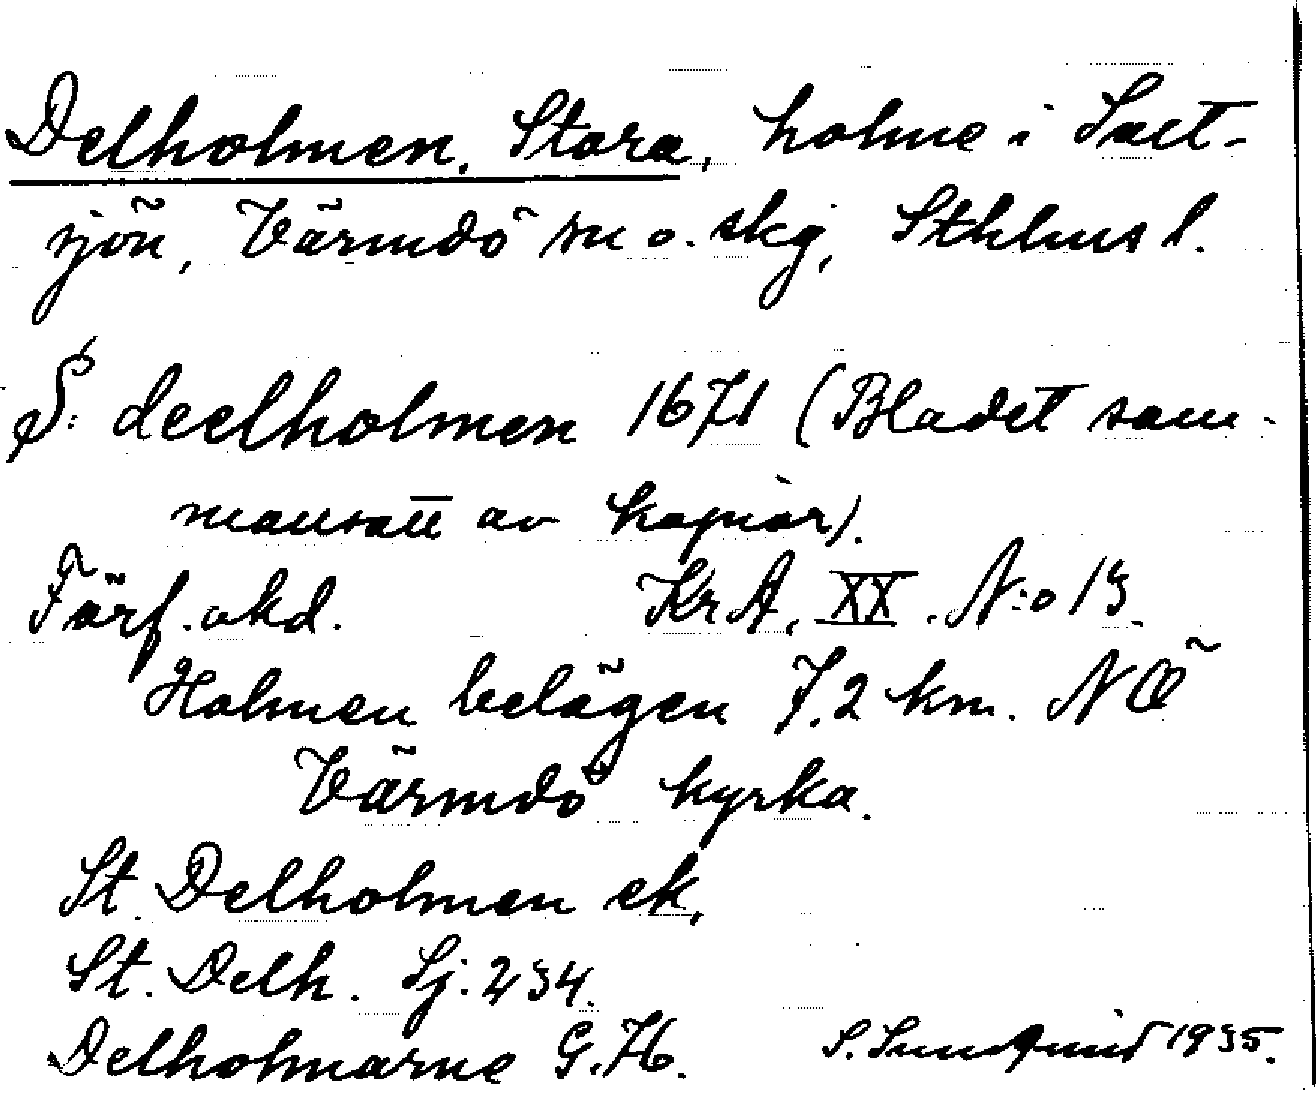 Delholmen, Stora, holme i Salt-
sjön, Värmdö sn o. skg, Sthlms l.
S: deelholmen 1671 (Bladet sam-
mansatt av kopior).
Förf. okd. KrA, XX. N:o 13.
Holmen belägen 7.2 km. NÖ
Värmdö kyrka.
St. Delholmen ek,
St. Delh. Sj. 234.
Delholmarne G.H. S. Sundqvist 1935.